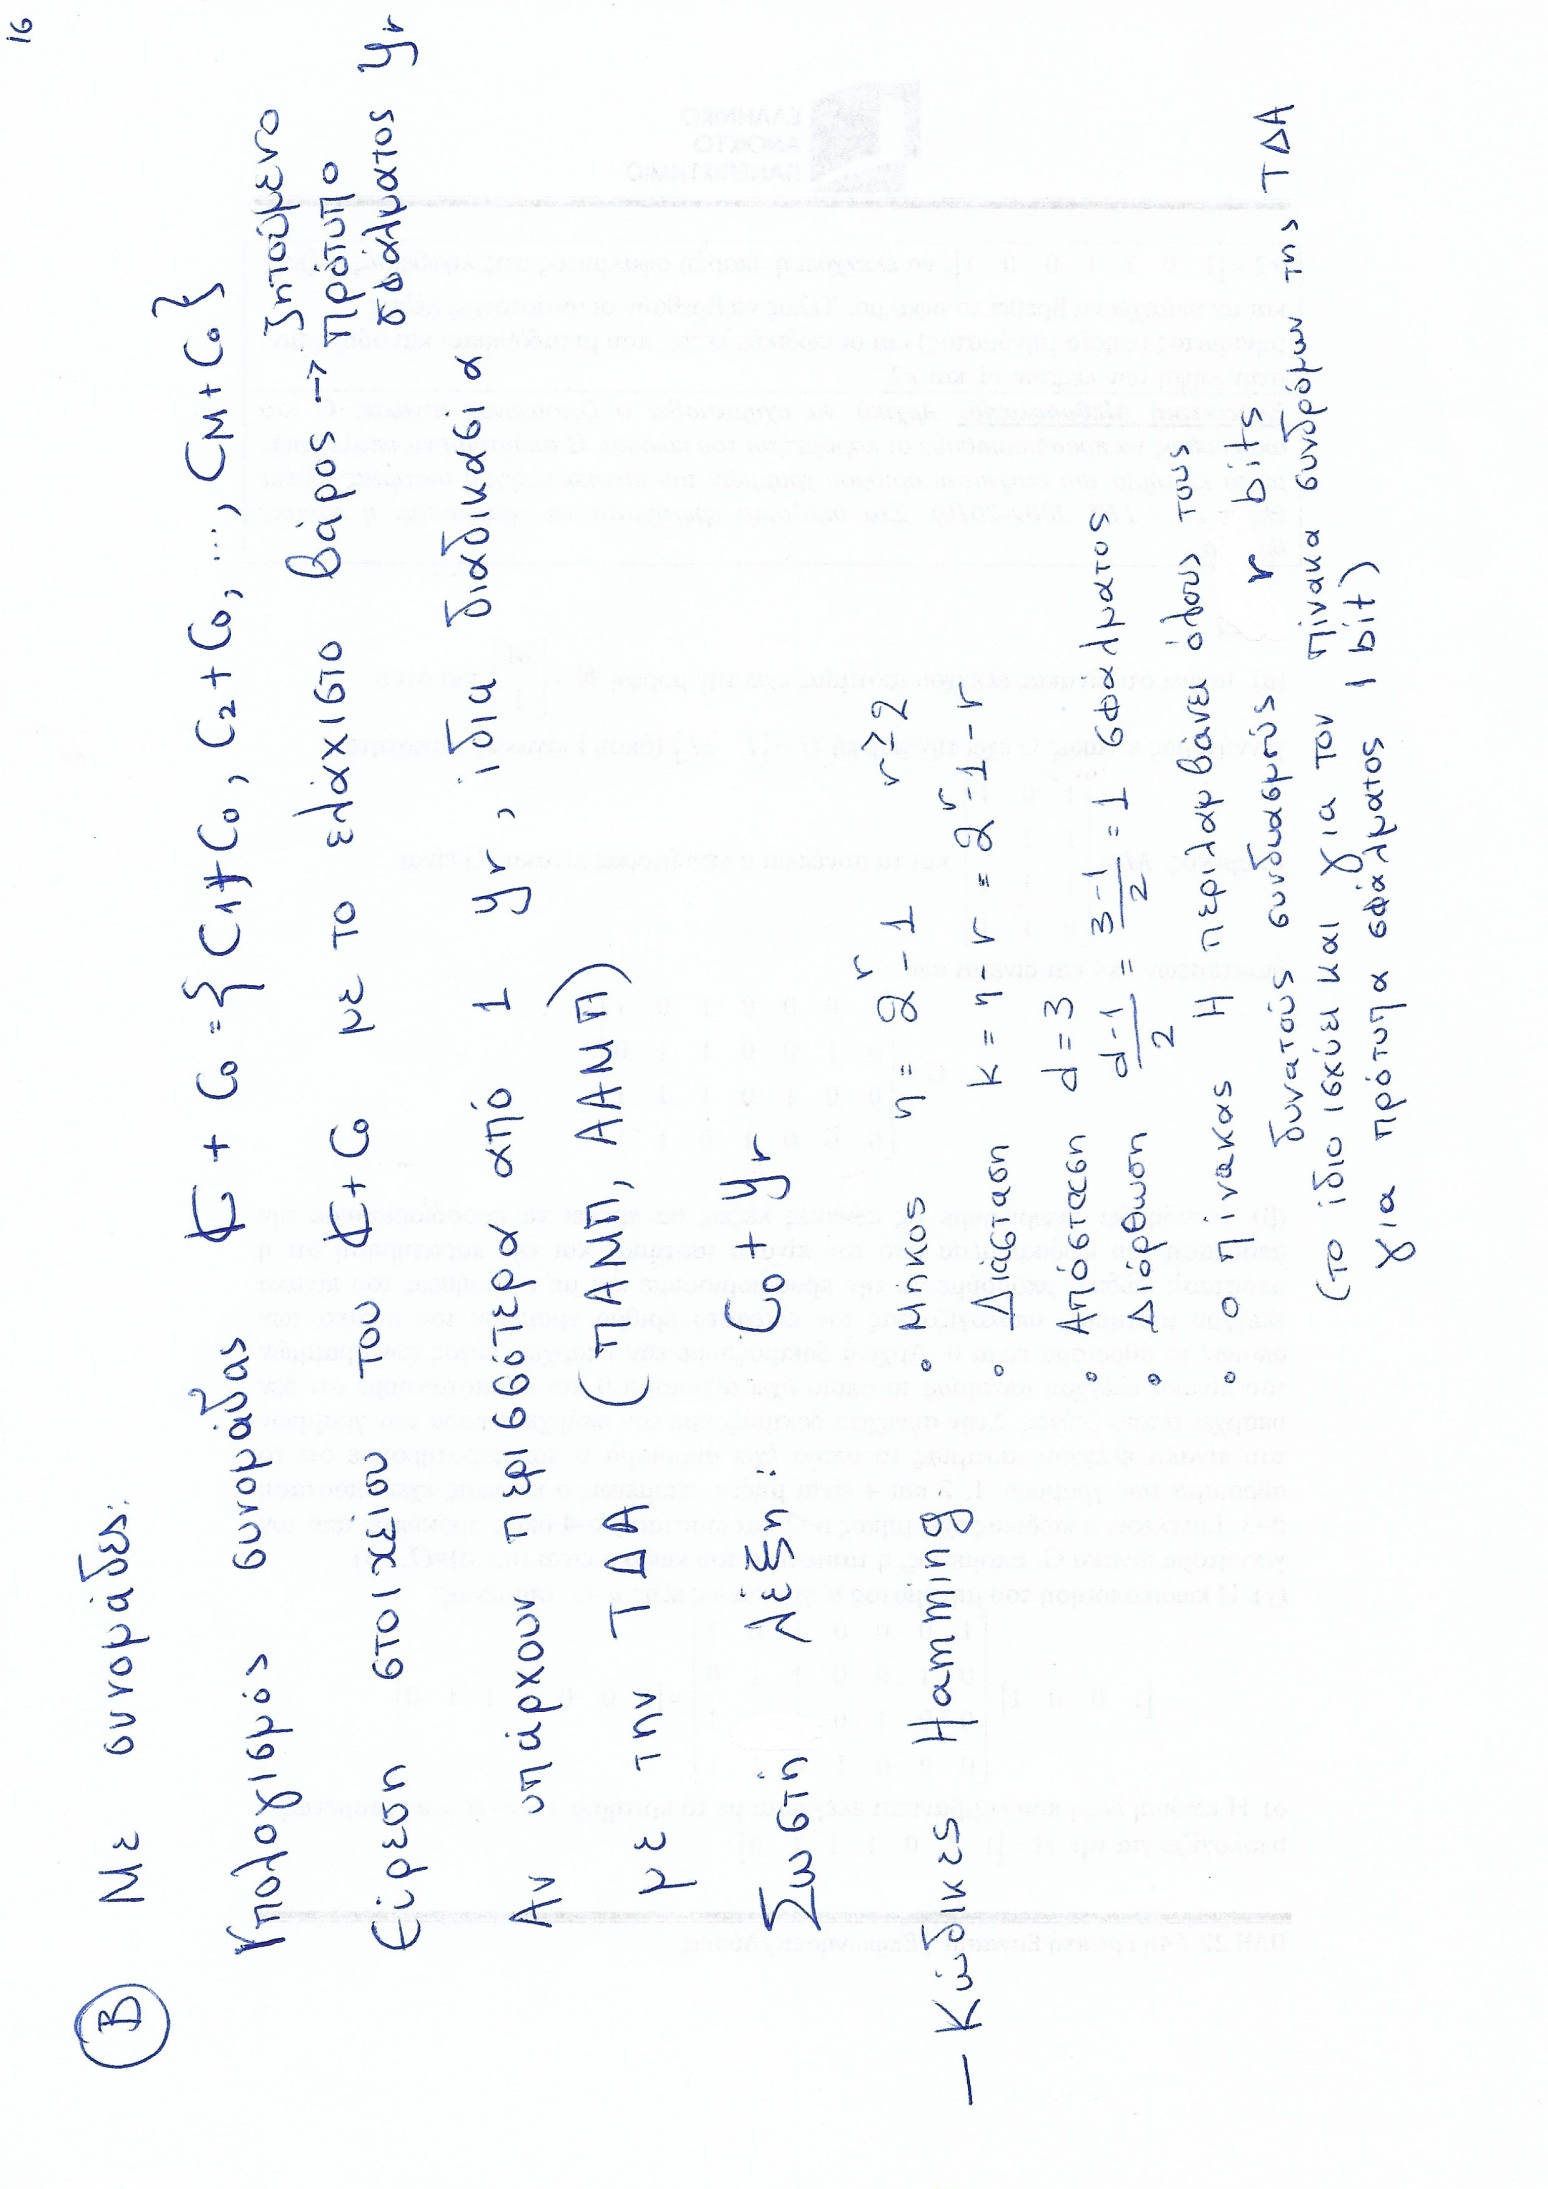 16
Β Με συνομάδες:
Υπολογισμός συνομάδας C + C0 = { C1 + C0, C2 + C0, ..., CM + C0 }
Εύρεση στοιχείου του C + C0 με το ελάχιστο βάρος → ζητούμενο
πρότυπο
σφάλματος yr
Αν υπάρχουν περισσότερα από 1 yr, ίδια διαδικασία
με την ΤΔΑ (ΠΑΜΠ, ΑΑΜΠ)
Σωστή λέξη: C0 + yr
– Κώδικες Hamming
• Μήκος n = 2^r - 1 r ≥ 2
• Διάσταση k = n - r = 2^r - 1 - r
• Απόσταση d = 3
• Διόρθωση (d-1)/2 = (3-1)/2 = 1 σφάλματος
• Ο πίνακας H περιλαμβάνει όλους τους
δυνατούς συνδυασμούς r bits
(το ίδιο ισχύει και για τον πίνακα συνδρόμων της ΤΔΑ
για πρότυπα σφάλματος 1 bit)